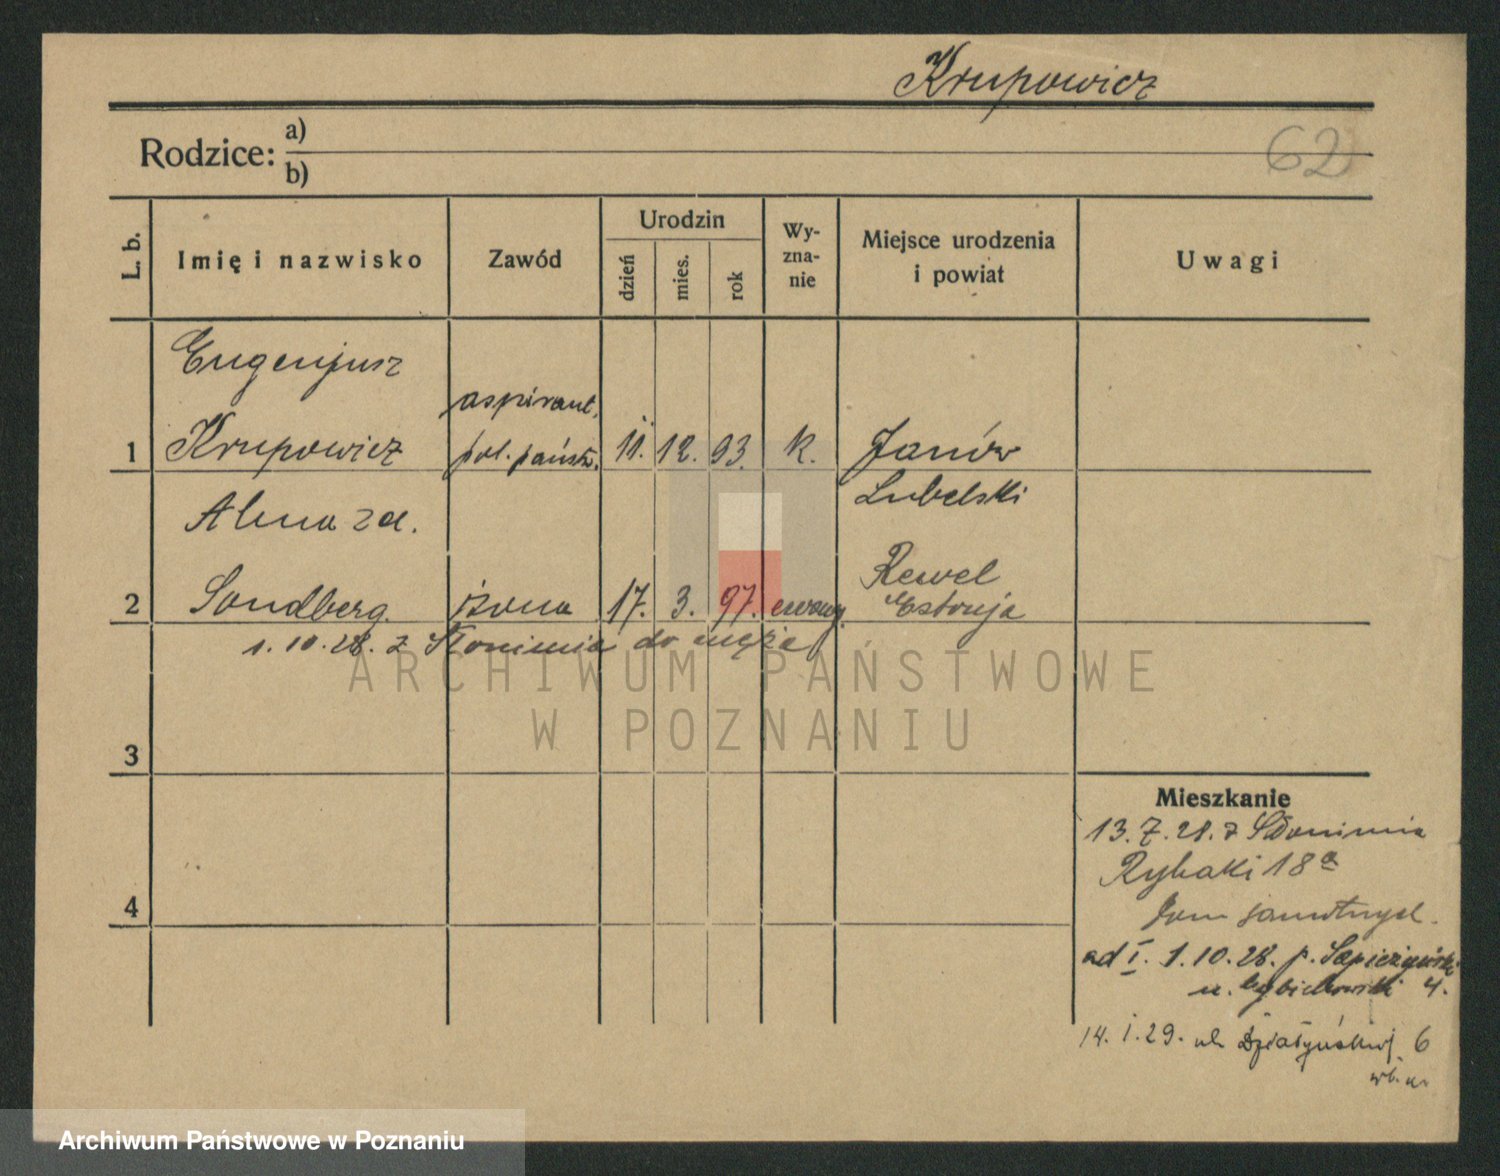 Krupowicz
Rodzice: a)
b)
62
L. b.
Imię i nazwisko
Zawód
Urodzin
dzień
mies.
rok
Wy-
zna-
nie
Miejsce urodzenia
i powiat
Uwagi
Eugenjusz
aspirant.
1 Krupowicz pol. państw. 11. 12. 93. k. Janów
Lubelski
Alma zd.
Rewel
2 Sandberg. żona 17. 3. 97. ewang. Estonja
1.10.28. z Słonimia do męża
ARCHIWUM PAŃSTWOWE
W POZNANIU
3
4
Mieszkanie
13.7.28. z Słonimia
Rybaki 18a
ad I. 1.10.28. p. Sapieżyński
4.
14.I.29. ul. Działyńskiej 6
Archiwum Państwowe w Poznaniu